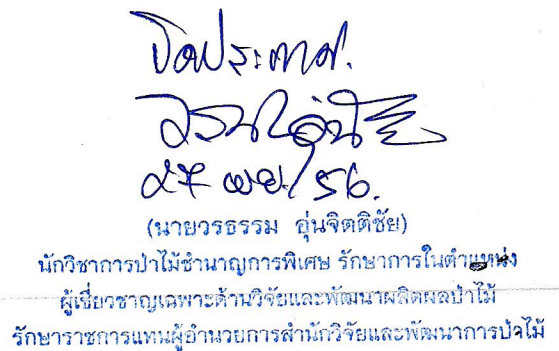 ปิดประกาศ.
๒๗ พย. 56.
(นายวรธรรม อุ่นจิตติชัย)
นักวิชาการป่าไม้ชำนาญการพิเศษ รักษาการในตำแหน่ง
ผู้เชี่ยวชาญเฉพาะด้านวิจัยและพัฒนาผลิตผลป่าไม้
รักษาราชการแทนผู้อำนวยการสำนักวิจัยและพัฒนาการป่าไม้